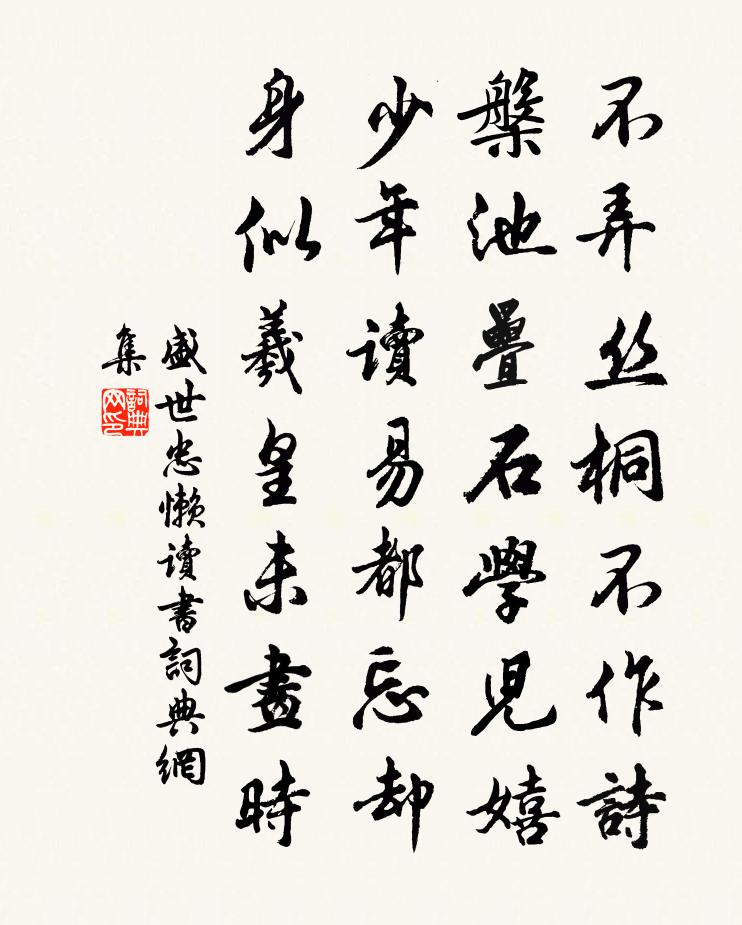 不弄丝桐不作詩
槃池疊石學児嬉
少年讀易都忘却
身似羲皇未畫時
盛世忠懒讀書詞典網
集
詞典网印